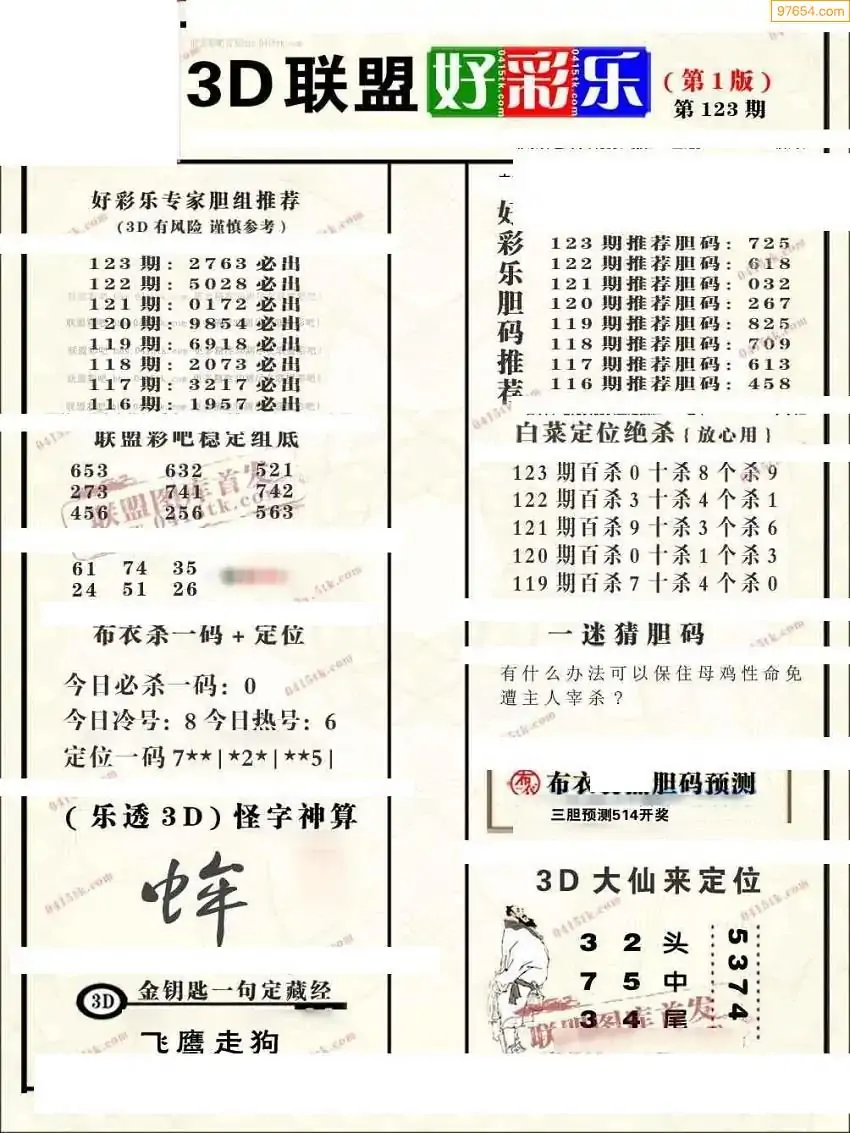 97654.com
3D联盟好彩乐
(第1版)
第123期
好彩乐专家胆组推荐
(3D有风险 谨慎参考)
123期: 2763必出
122期: 5028必出
121期: 0172必出
120期: 9854必出
119期: 6918必出
118期: 2073必出
117期: 3217必出
116期: 1957必出
联盟彩吧稳定组底
653 632 521
273 741 742
456 256 563
61 74 35
24 51 26
布衣杀一码+定位
今日必杀一码: 0
今日冷号: 8 今日热号: 6
定位一码7**|*2*|**5|
(乐透3D)怪字神算
3D 金钥匙一句定藏经
飞鹰走狗
好彩乐胆码推荐
123期推荐胆码: 725
122期推荐胆码: 618
121期推荐胆码: 032
120期推荐胆码: 267
119期推荐胆码: 825
118期推荐胆码: 709
117期推荐胆码: 613
116期推荐胆码: 458
白菜定位绝杀{放心用}
123期百杀0十杀8个杀9
122期百杀3十杀4个杀1
121期百杀9十杀3个杀6
120期百杀0十杀1个杀3
119期百杀7十杀4个杀0
一迷猜胆码
有什么办法可以保住母鸡性命免
遭主人宰杀?
布衣 胆码预测
三胆预测514开奖
3D大仙来定位
3 2 头
7 5 中
3 4 尾
5374
联盟图库首发
0415tk.com